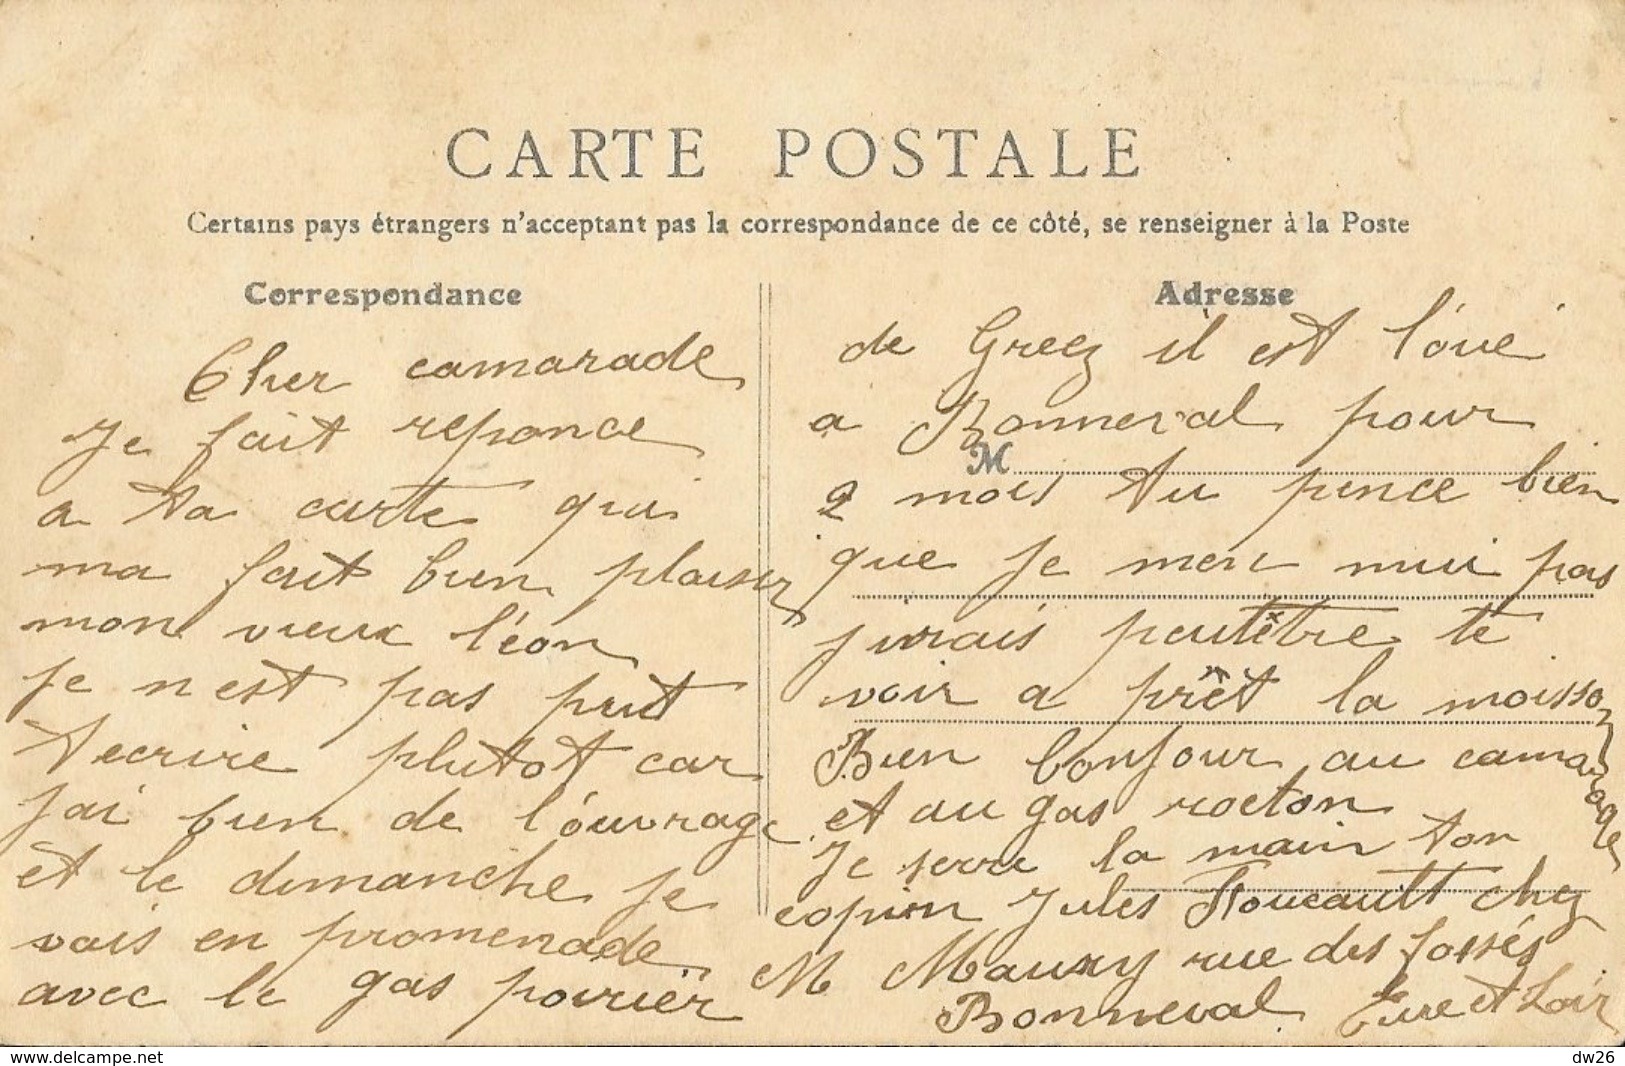 CARTE POSTALE
Certains pays étrangers n'acceptant pas la correspondance de ce côté, se renseigner à la Poste
Correspondance
Cher camarade
Je fait reponce
a ta carte qui
ma fait bien plaisir
mon vieux l'éon
Je n'est pas put
t'ecrire plutot car
J'ai bien de l'ouvrage
et le dimanche je
vais en promenade
avec le gas poirier
Adresse
de Greez il est l'oué
a Bonneval pour
M
2 mois tu pence bien
que je men nui pas
j'irais peutêtre te
voir a prêt la moisson
Bien bonjour au camarade
et au gas rocton
Je serre la main ton
copin Jules Foucault chez
M Mauny rue des fossés
Bonneval Eure et Loir
www.delcampe.net
dw26